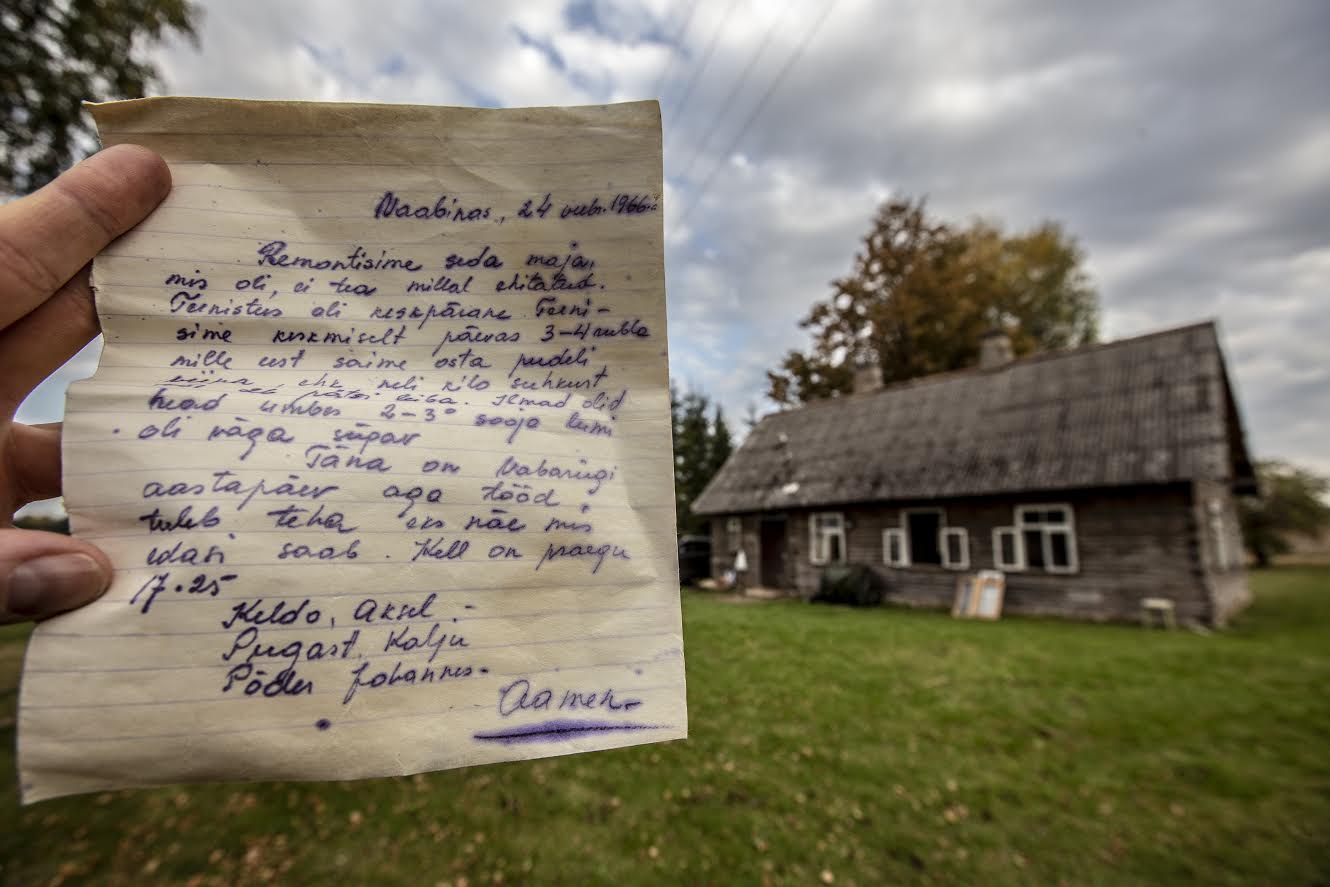 Naabinas, 24 veebr. 1966.a
Remontisime seda maja,
mis oli, ei tea millal ehitatud.
Teenistus oli keskpärane Teeni-
sime keskmiselt päevas 3-4 rubla
mille eest saime osta pudeli
viina ehk neli kilo suhkurt
leiba. Ilmad olid
head umbes 2-3° sooja lumi
oli väga sügav
Täna on Vabariigi
aastapäev aga tööd
tuleb teha eks näe mis
edasi saab. Kell on praegu
17.25
Keldo, Aksel.-
Pugast, Kalju
Põder Johannes-
Aamen-